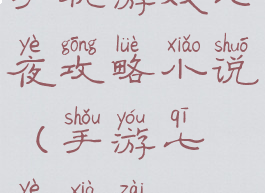 yè gōng lüè xiǎo shuō
夜攻略小说
shǒu yóu qī
(手游七
yè xià zài